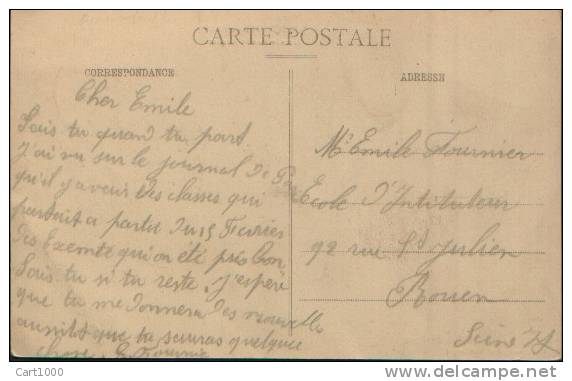 CARTE POSTALE
CORRESPONDANCE
ADRESSE
Cher Emile
Sais tu quand tu part.
J'ai vu sur le journal de
qu'il y aveur des classes qui
partrait a parté du 15 Fevrier
des Exemté qui on été pris bon
Sais tu si tu reste. J'esperé
que tu me donnera des nouvelle
aussitôt que tu sauras quelque
Mr Emile Fournier
Ecole d'Intituteur
92 rue St Julien
Rouen
Seine If
Cart1000
www.delcampe.net